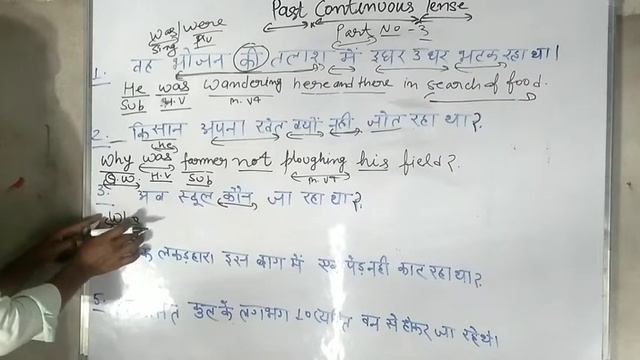 Past Continuous Tense
Part No - 3
Was/were
Sing Plu
1. वह भोजन की तलाश में इधर उधर भटक रहा था।
He was wandering here and there in search of food.
Sub H.V m.v4
2. किसान अपना खेत क्यों नही जोत रहा था?
he
Why was farmer not ploughing his field?
Q.W. H.V Sub m.v4
3. अब स्कूल कौन जा रहा था?
लकड़हारा इस बाग में पेड़ नही काट रहा था?
5. कुल के लगभग 10 वन से होकर जा रहे थे।